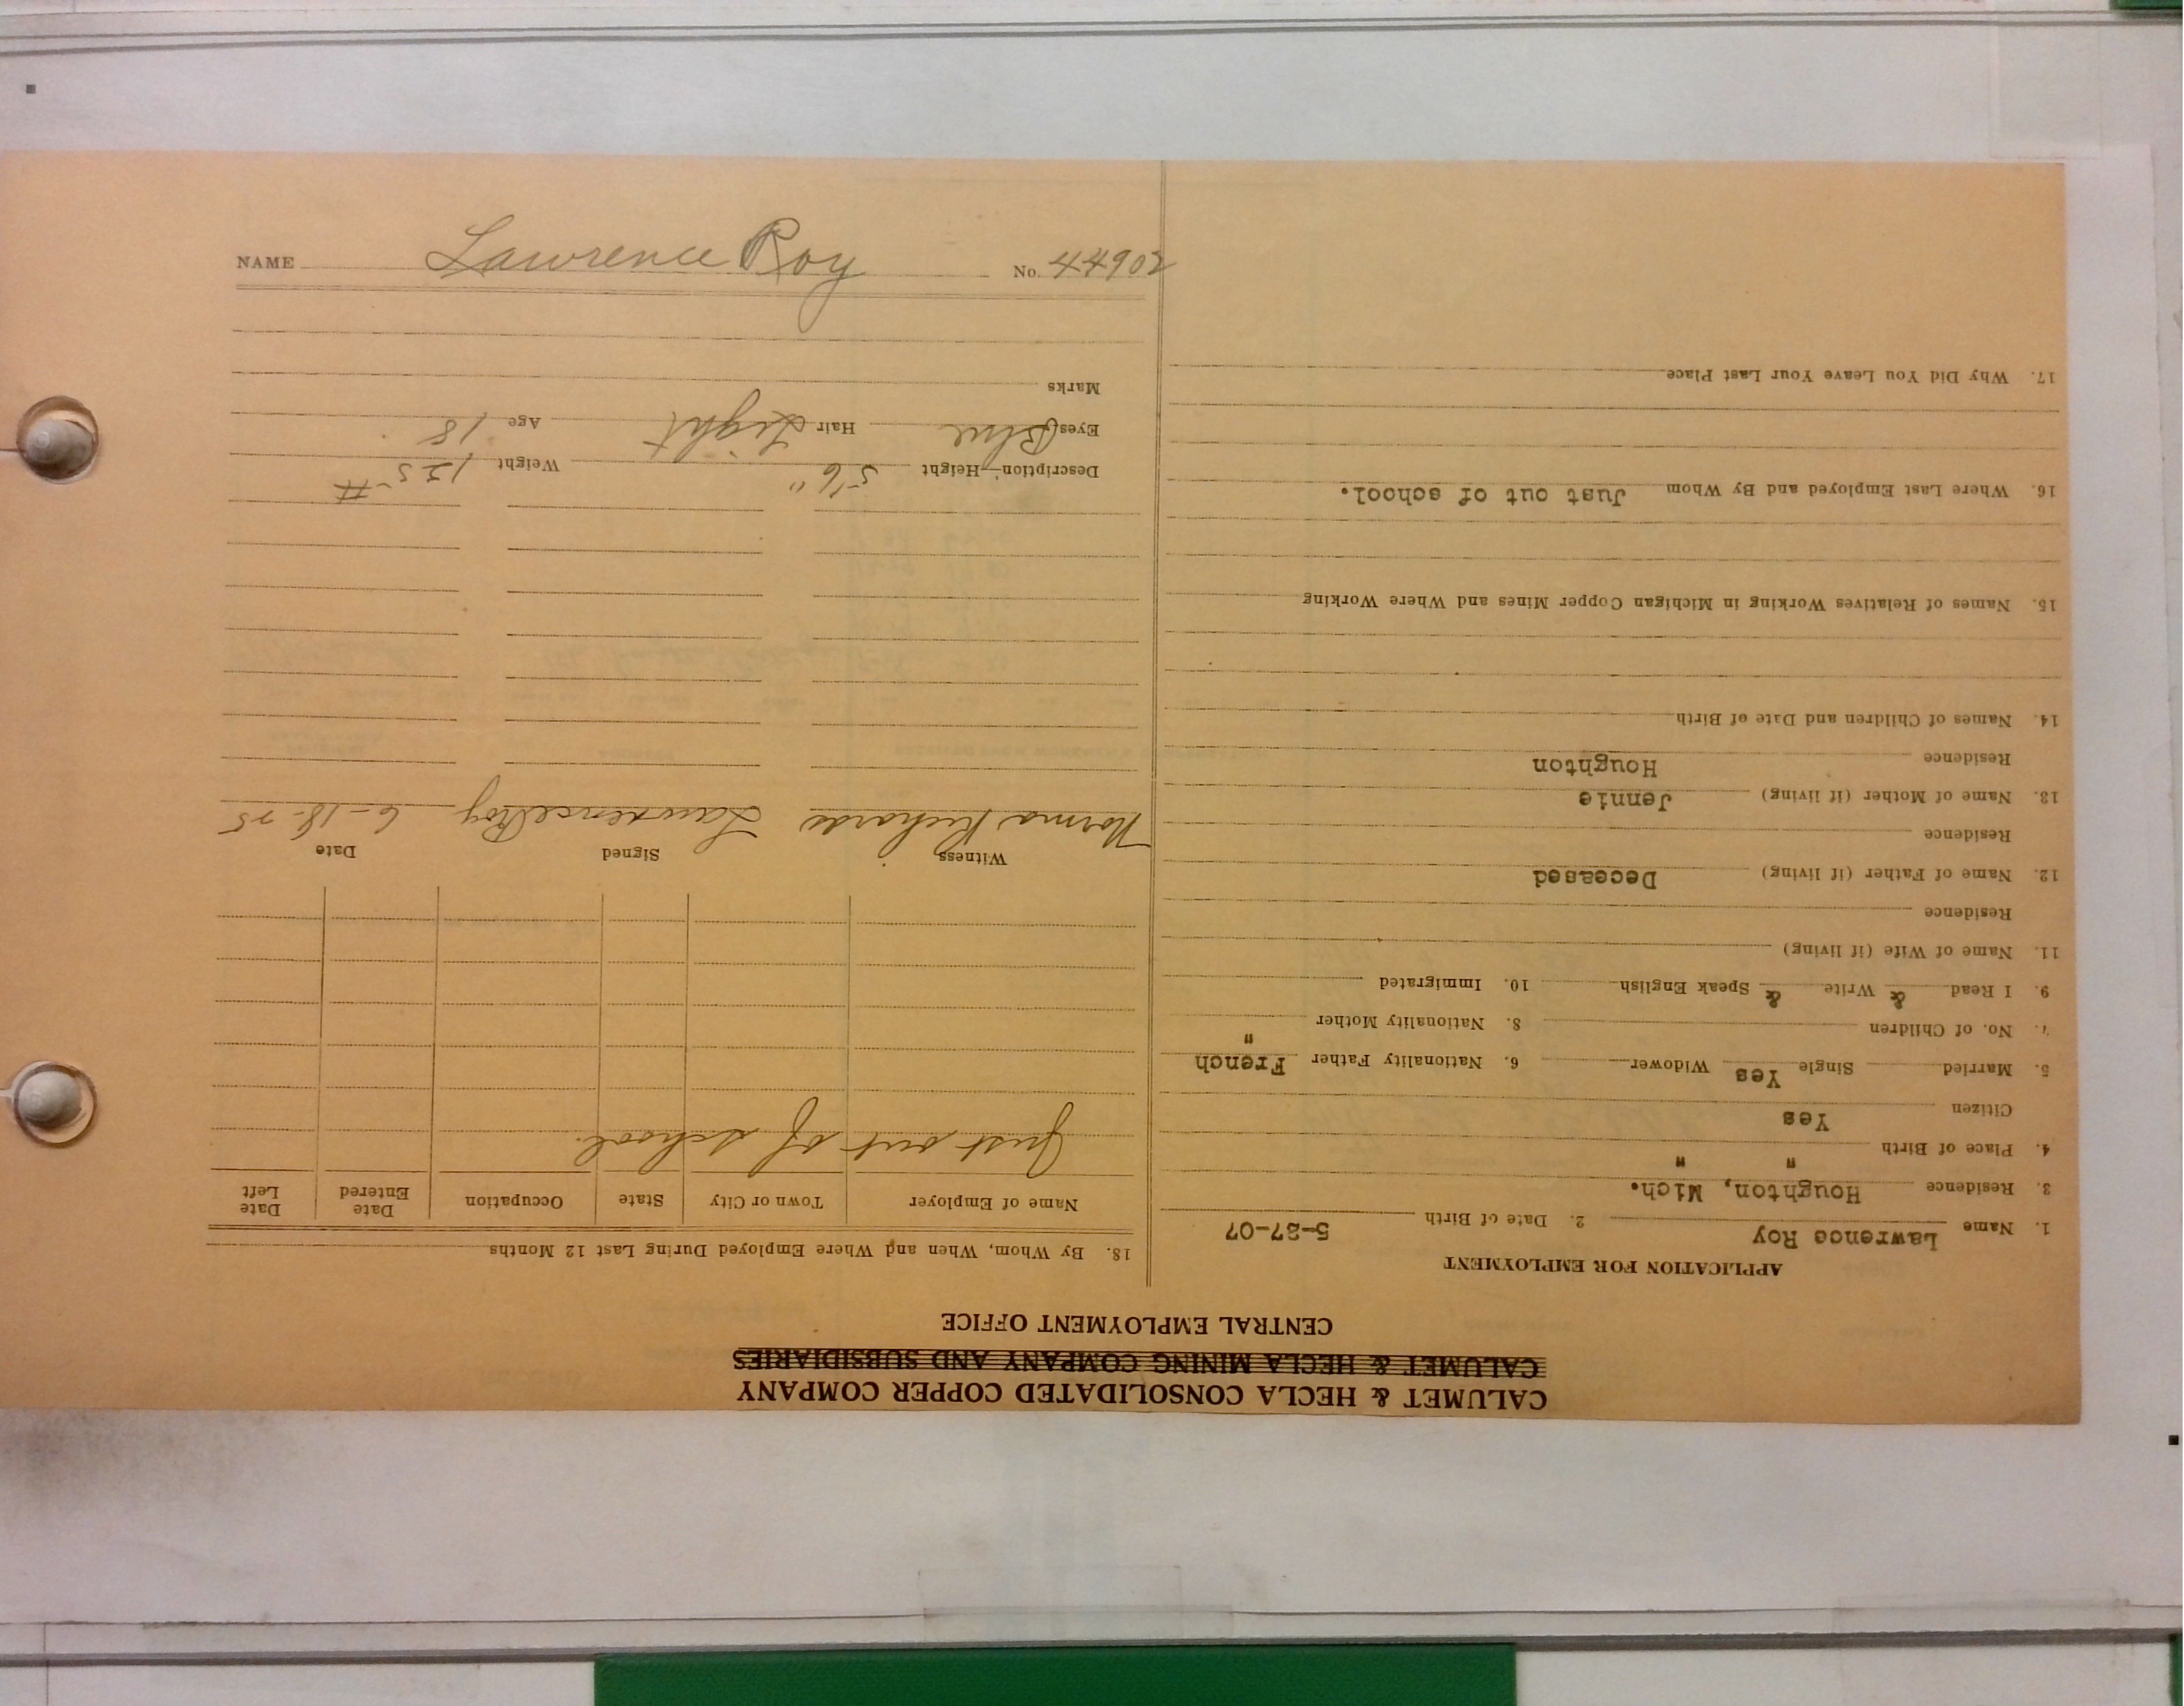 NAME Lawrence Roy No. 44902
CALUMET & HECLA CONSOLIDATED COPPER COMPANY
CALUMET & HECLA MINING COMPANY AND SUBSIDIARIES
CENTRAL EMPLOYMENT OFFICE
APPLICATION FOR EMPLOYMENT
1. Name Lawrence Roy 2. Date of Birth 5-27-07
3. Residence Houghton, Mich.
4. Place of Birth " "
Citizen Yes
5. Married Single Yes Widower 6. Nationality Father French
7. No. of Children 8. Nationality Mother "
9. I Read & Write & Speak English 10. Immigrated
11. Name of Wife (if living)
Residence
12. Name of Father (if living) Deceased
Residence
13. Name of Mother (if living) Jennie
Residence Houghton
14. Names of Children and Date of Birth
15. Names of Relatives Working in Michigan Copper Mines and Where Working
16. Where Last Employed and By Whom Just out of school.
17. Why Did You Leave Your Last Place
18. By Whom, When and Where Employed During Last 12 Months
Name of Employer Town or City State Occupation Date Entered Date Left
Just out of school.
Witness Signed Date
Norma Richards Lawrence Roy 6-18-25
Description—Height 5'6" Weight 125#
Eyes Blue Hair Light Age 18
Marks